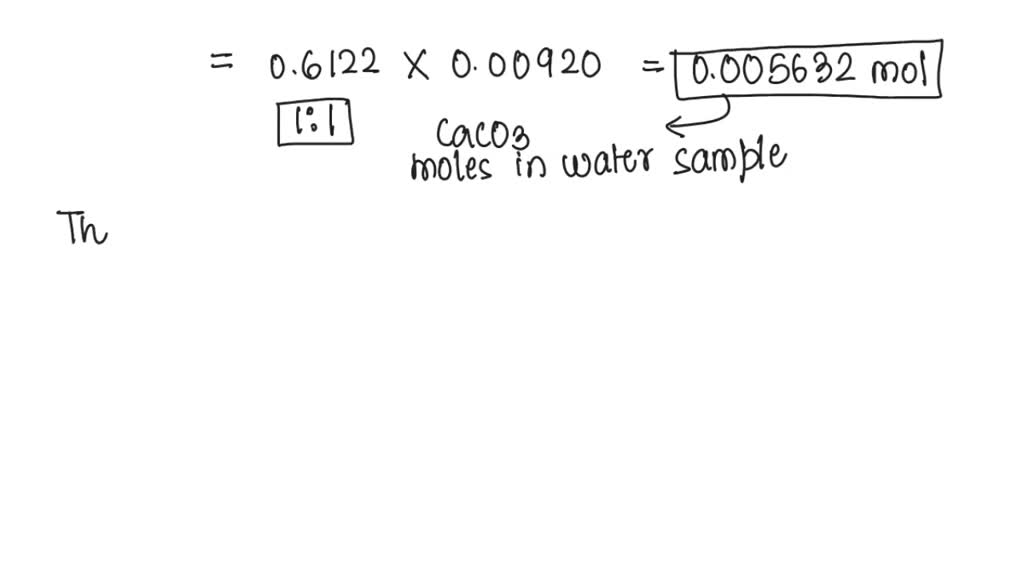 = 0.6122 X 0.00920 = 0.005632 mol
1:1
CaCO3
moles in water sample
Th